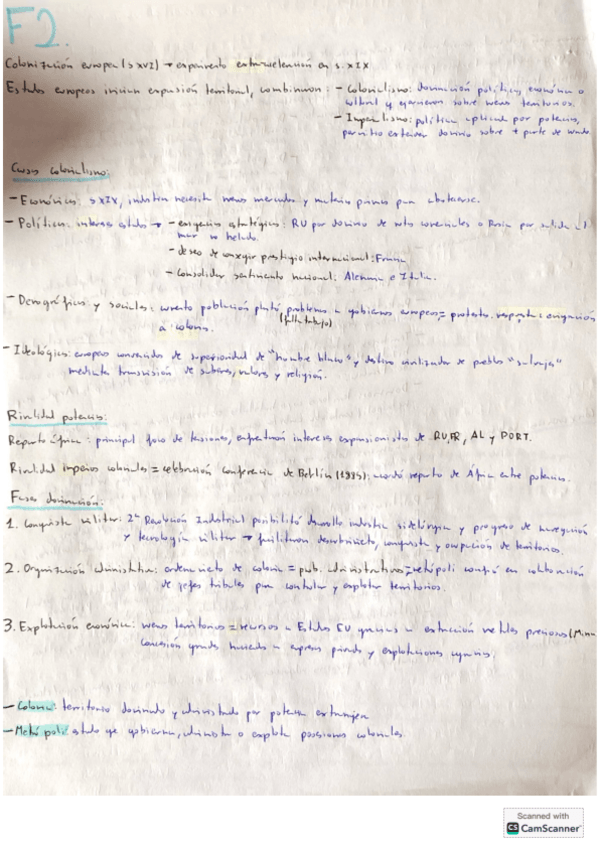 F2.
Colonización europea (s XVI) → experimenta extraaceleración en s. XIX
Estados europeos inician expansión territorial, combinaron: - Colonialismo: dominación política, económica o
cultural y ejercieron sobre nuevos territorios.
- Imperialismo: política aplicada por potencias,
permitió extender dominio sobre + parte de mundo.
Causas colonialismo:
- Económicas: s XIX, industria necesita nuevos mercados y materias primas para abastecerse.
- Políticas: intereses estados → - exigencias estratégicas: RU por dominio de rutas comerciales o Rusia por salida al
mar no helado.
- deseo de conseguir prestigio internacional: Francia
- Consolidar sentimiento nacional: Alemania e Italia.
- Demográficas y sociales: aumento población planteó problemas a gobiernos europeos = protestas. respuesta: emigración
(falta trabajo)
a colonias.
- Ideológicas: europeos convencidos de superioridad de "hombre blanco" y destino civilizador de pueblos "salvajes"
mediante transmisión de saberes, valores y religión.
Rivalidad potencias:
Reparto África: principal foco de tensiones, enfrentaron intereses expansionistas de RU, FR, AL y PORT.
Rivalidad imperios coloniales = celebración conferencia de Berlín (1885): acordó reparto de África entre potencias.
Fases dominación:
1. Conquista militar: 2ª Revolución Industrial posibilitó desarrollo industria siderúrgica y progreso de navegación
y tecnología militar → facilitaron descubrimiento, conquista y ocupación de territorios.
2. Organización administrativa: ordenamiento de colonia = pob. administrativas = metrópoli confió en colaboración
de jefes tribales para controlar y explotar territorios.
3. Explotación económica: nuevos territorios = recursos a Estados EU gracias a extracción metales preciosos (Minas)
concesión grandes a empresas privadas y explotaciones agrarias.
- Colonia: territorio dominado y administrado por potencia extranjera
- Metrópoli: estado que gobierna, administra o explota posesiones coloniales.
Scanned with
CS CamScanner